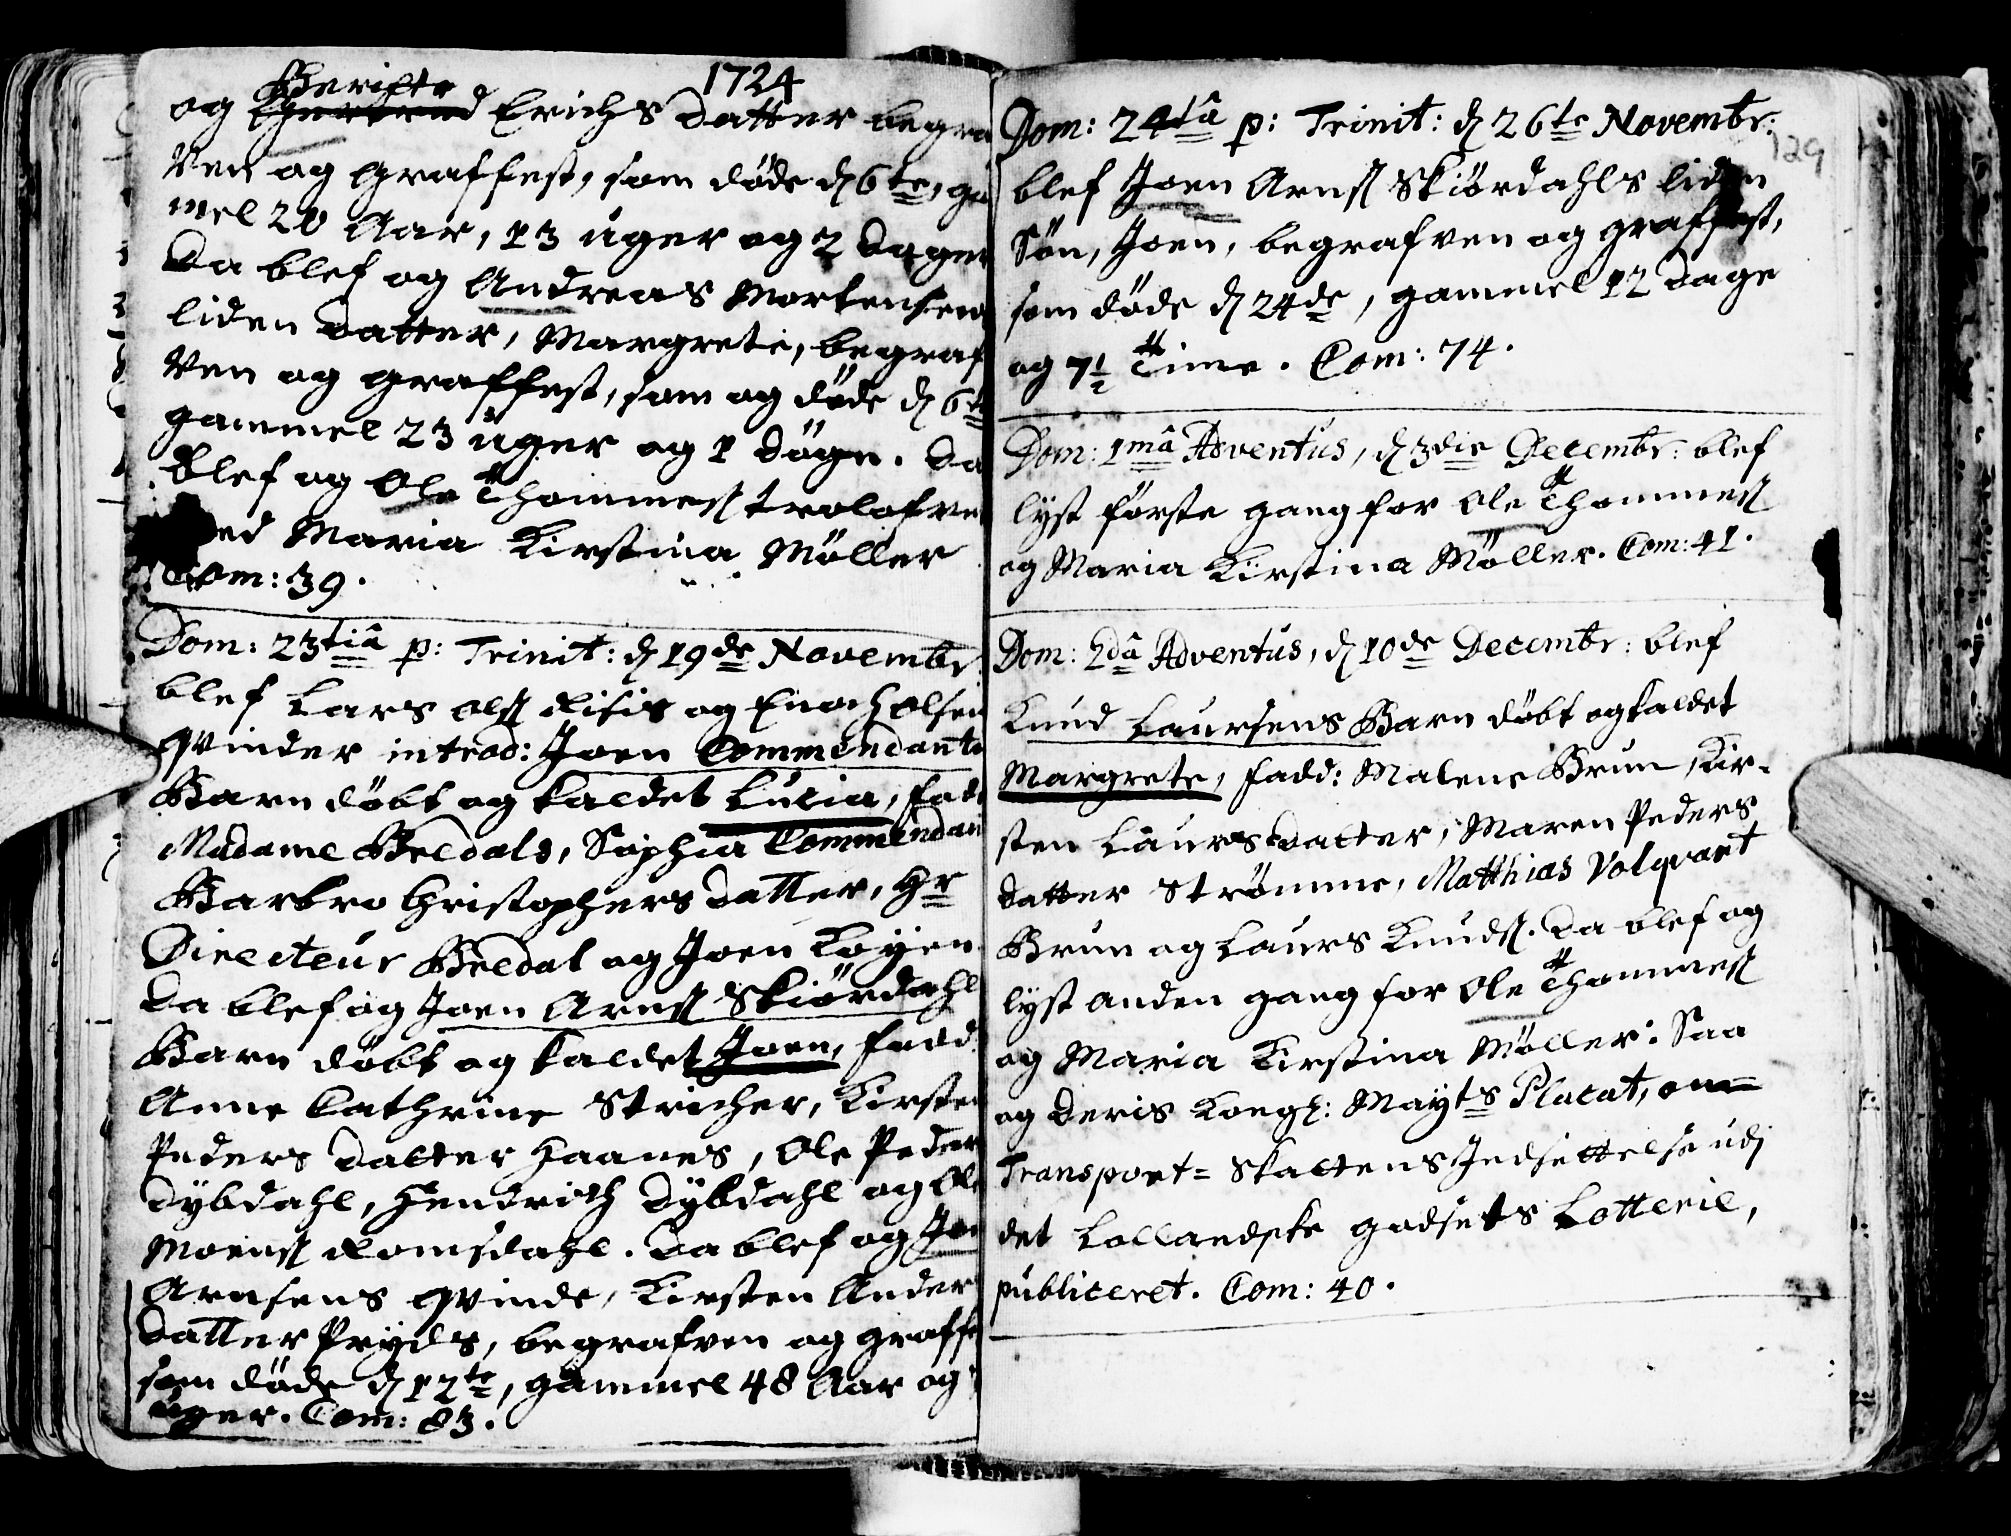 1724
Berifte
og Erichs datter begra
ven og graffest, som døde d 6te, ga
mel 20 Aar, 13 uger og 2 dager
Da blef og Andreas Mortensens
liden datter, Margrete, begraf
ven og graffest, som og døde d 6te
gammel 23 uger og 1 døgn. Da
blef og Ole Thommesß trolofvet
ed Maria Kirstina Møller
Com: 39.
Dom: 23tiâ p: Trinit: d 19de Novembr.
blef Lars Olsß Risis og Enoch Olsen
qvinder introd: Joen Commendants
Barn døbt og kaldet Lucia, fadd
Madame Bredals, Sophia Commendan
Barbro Christophers datter, Hr
Directeur Bredal og Joen Løyen.
Da blef og Joen Arnsß Skiørdahl
Barn døbt og kaldet Joen, fadd.
Anne Cathrine Stricher, Kirsten
Peders datter Haanes, Ole Peders
Dybdahl, Hendrich Dybdahl og Ole
Moensß Romsdahl. Da blef og Joen
Arnsens qvinde, Kirsten Anders
datter Pryds, begrafven og graffe
som døde d 12te, gammel 48 Aar og
uger. Com: 83.
129
Dom: 24tâ p: Trinit: d 26te Novembr:
blef Joen Arnsß Skiørdahls liden
Søn, Joen, begrafven og graffest,
som døde d 24de, gammel 12 dage
og 7½ Time. Com: 74.
Dom: 1mâ Adventus, d 3die Decembr: blef
lyst første gang for Ole Thommesß
og Maria Kirstina Møller. Com: 41.
Dom: 2dâ Adventus, d 10de Decembr: blef
Knud Laursens Barn døbt og kaldet
Margrete, fadd: Malene Brun, Kir-
sten Laursdatter, Maren Peders
datter Strømme, Matthias Volqvart
Brun og Laurs Knudsß. Da blef og
lyst anden gang for Ole Thommesß
og Maria Kirstina Møller: Saa
og Deris Kongl: Mayts Placat, om
Transport= Skattens Indsettelse udj
det Lollandske godsets Lotterie,
publiceret. Com: 40.